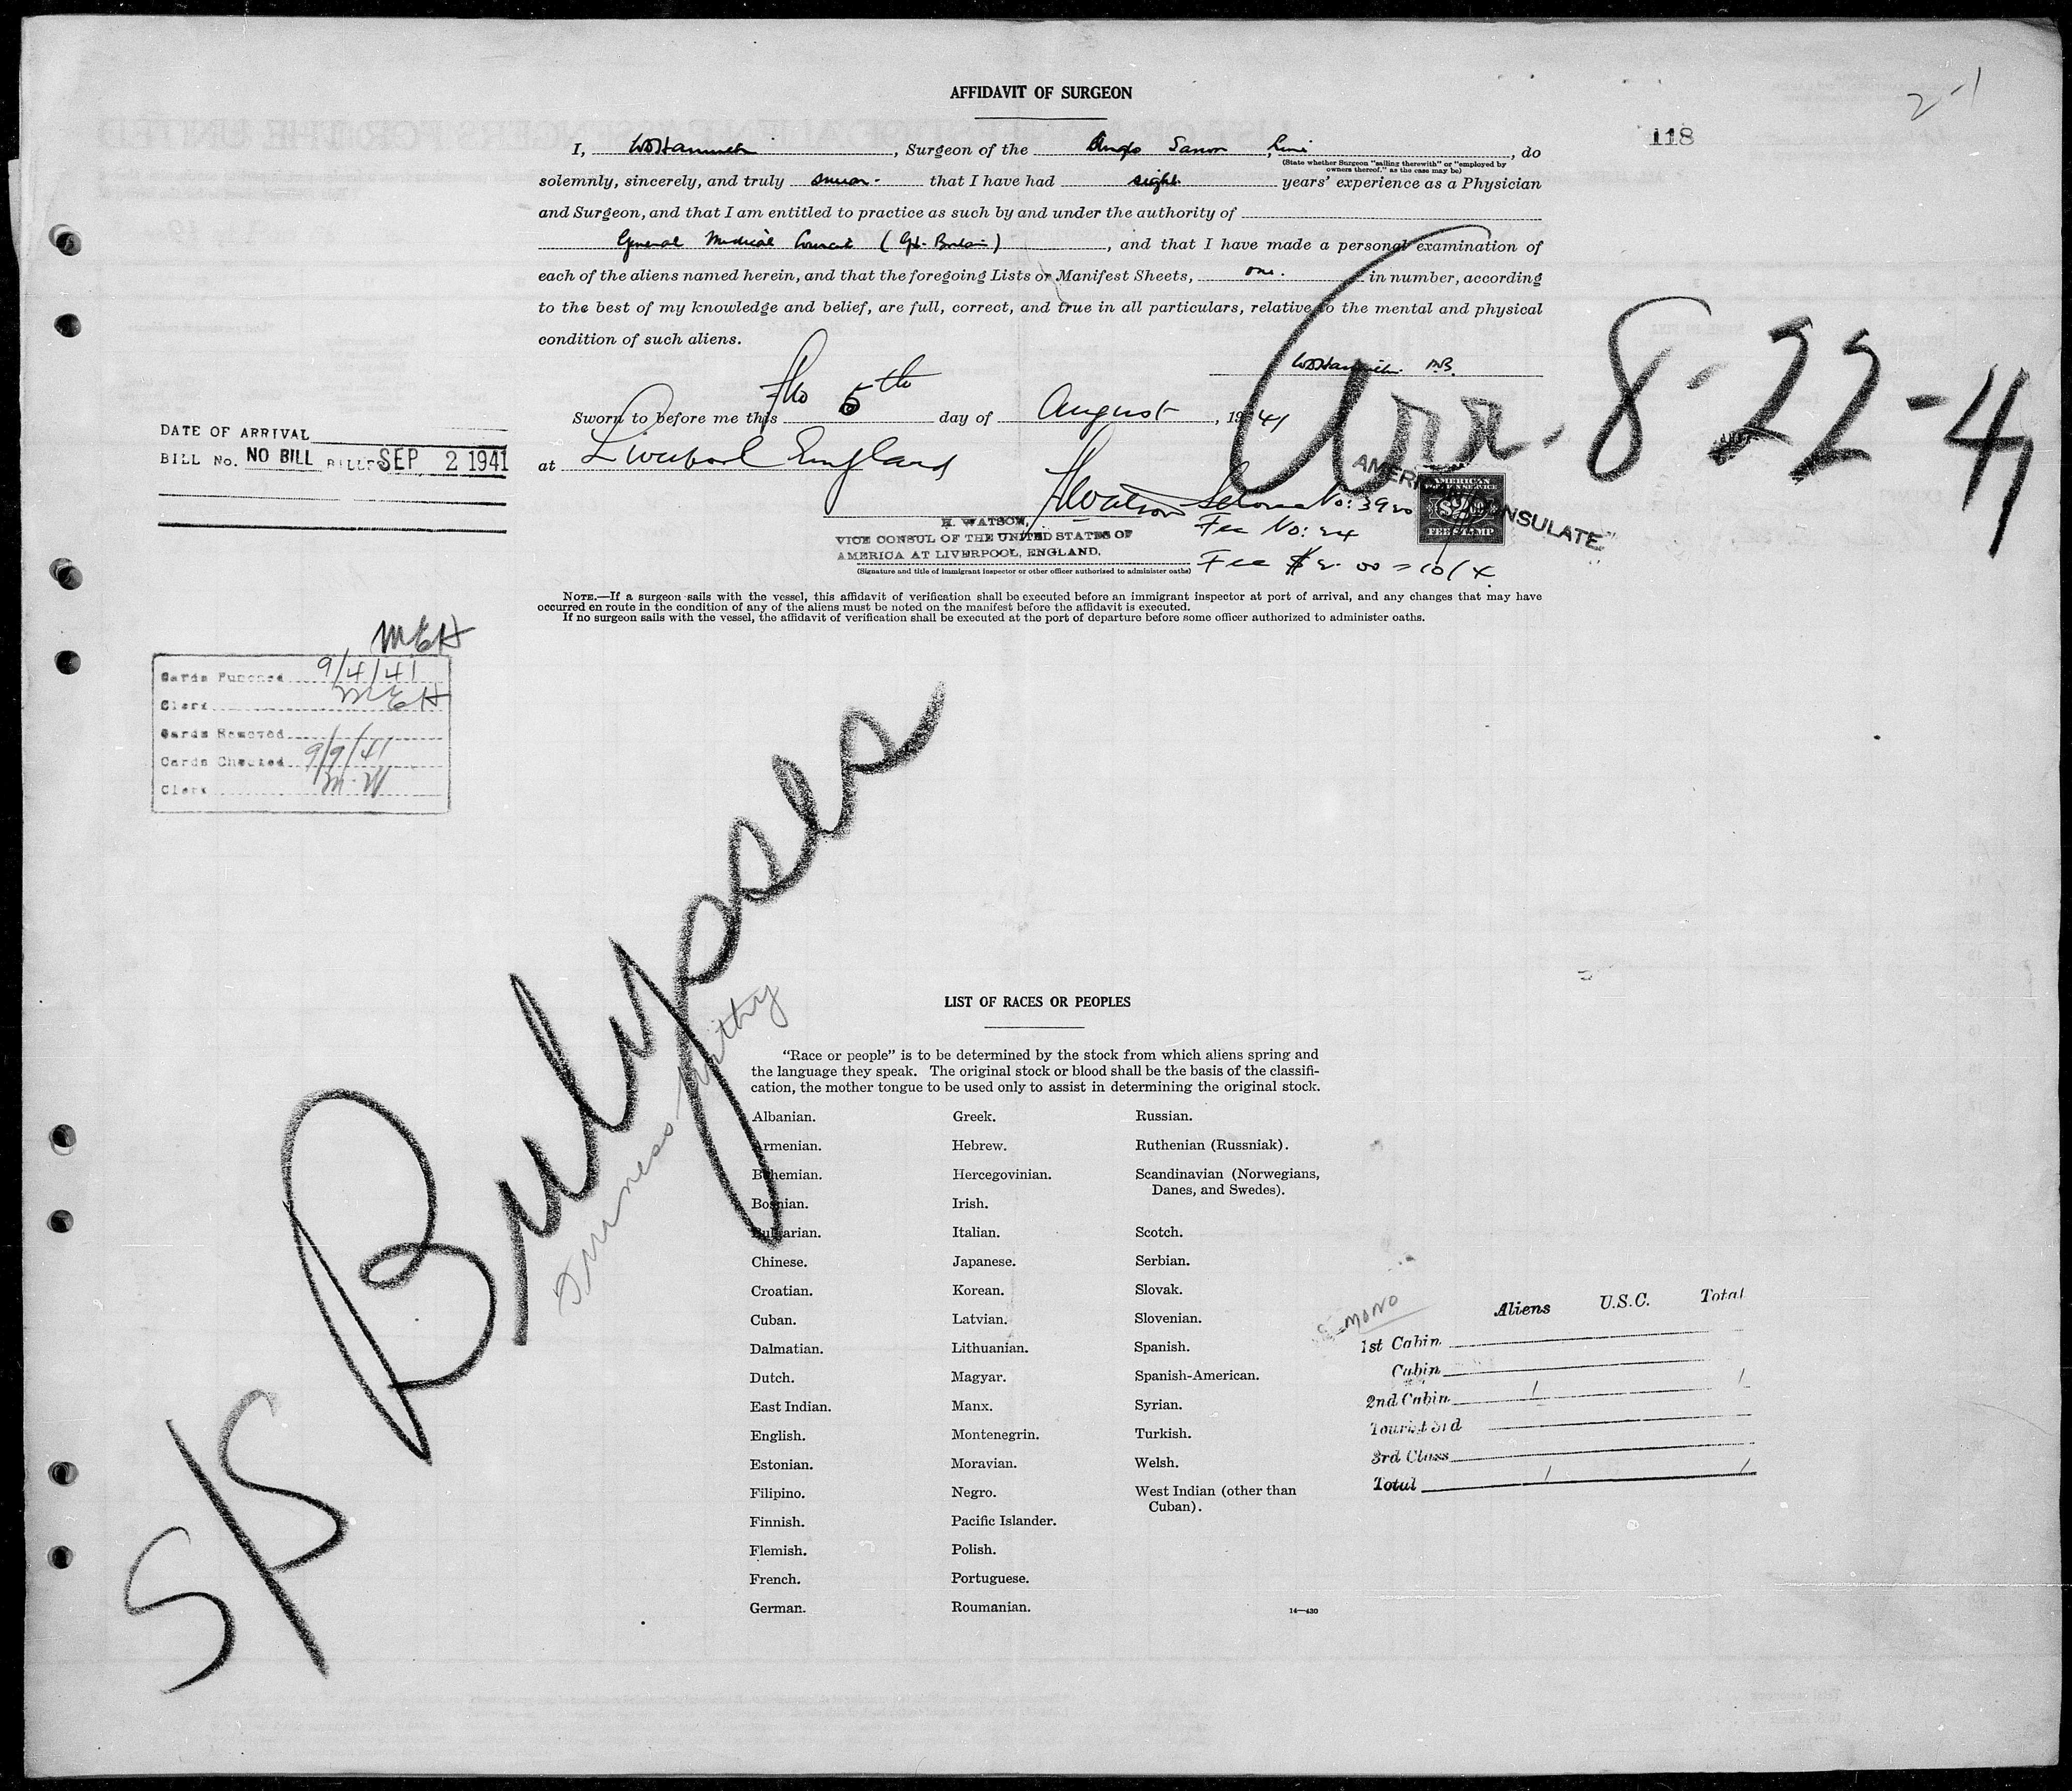 AFFIDAVIT OF SURGEON
2-1
118
I, , Surgeon of the Anglo Saxon , do
(State whether Surgeon "sailing therewith" or "employed by
owners thereof," as the case may be)
solemnly, sincerely, and truly swear that I have had eight years' experience as a Physician
and Surgeon, and that I am entitled to practice as such by and under the authority of
General Medical Council (Gt. Britain) , and that I have made a personal examination of
each of the aliens named herein, and that the foregoing Lists or Manifest Sheets, one. in number, according
to the best of my knowledge and belief, are full, correct, and true in all particulars, relative to the mental and physical
condition of such aliens.
Arr. 8-22-41
Sworn to before me this 5th day of August , 1941
at Liverpool England
DATE OF ARRIVAL
BILL No. NO BILL SEP 2 1941
AMERICAN CONSULATE
HWatson No: 3920
Fee No: 24
Fee $2.00 = 10/4
AMERICAN
FEE STAMP
H. WATSON,
VICE CONSUL OF THE UNITED STATES OF
AMERICA AT LIVERPOOL, ENGLAND.
(Signature and title of immigrant inspector or other officer authorized to administer oaths)
NOTE.—If a surgeon sails with the vessel, this affidavit of verification shall be executed before an immigrant inspector at port of arrival, and any changes that may have
occurred en route in the condition of any of the aliens must be noted on the manifest before the affidavit is executed.
If no surgeon sails with the vessel, the affidavit of verification shall be executed at the port of departure before some officer authorized to administer oaths.
MEH
Cards Punched 9/4/41
Clerk MEH
Cards Removed
Cards Checked 9/9/41
Clerk M.W
S/S Bulysses
LIST OF RACES OR PEOPLES
"Race or people" is to be determined by the stock from which aliens spring and
the language they speak. The original stock or blood shall be the basis of the classifi-
cation, the mother tongue to be used only to assist in determining the original stock.
Albanian.
Armenian.
Bohemian.
Bosnian.
Bulgarian.
Chinese.
Croatian.
Cuban.
Dalmatian.
Dutch.
East Indian.
English.
Estonian.
Filipino.
Finnish.
Flemish.
French.
German.
Greek.
Hebrew.
Hercegovinian.
Irish.
Italian.
Japanese.
Korean.
Latvian.
Lithuanian.
Magyar.
Manx.
Montenegrin.
Moravian.
Negro.
Pacific Islander.
Polish.
Portuguese.
Roumanian.
Russian.
Ruthenian (Russniak).
Scandinavian (Norwegians,
Danes, and Swedes).
Scotch.
Serbian.
Slovak.
Slovenian.
Spanish.
Spanish-American.
Syrian.
Turkish.
Welsh.
West Indian (other than
Cuban).
14—430
MONO
Aliens U.S.C. Total
1st Cabin
Cabin
2nd Cabin 1 1
Tourist 3rd
3rd Class
Total 1 1